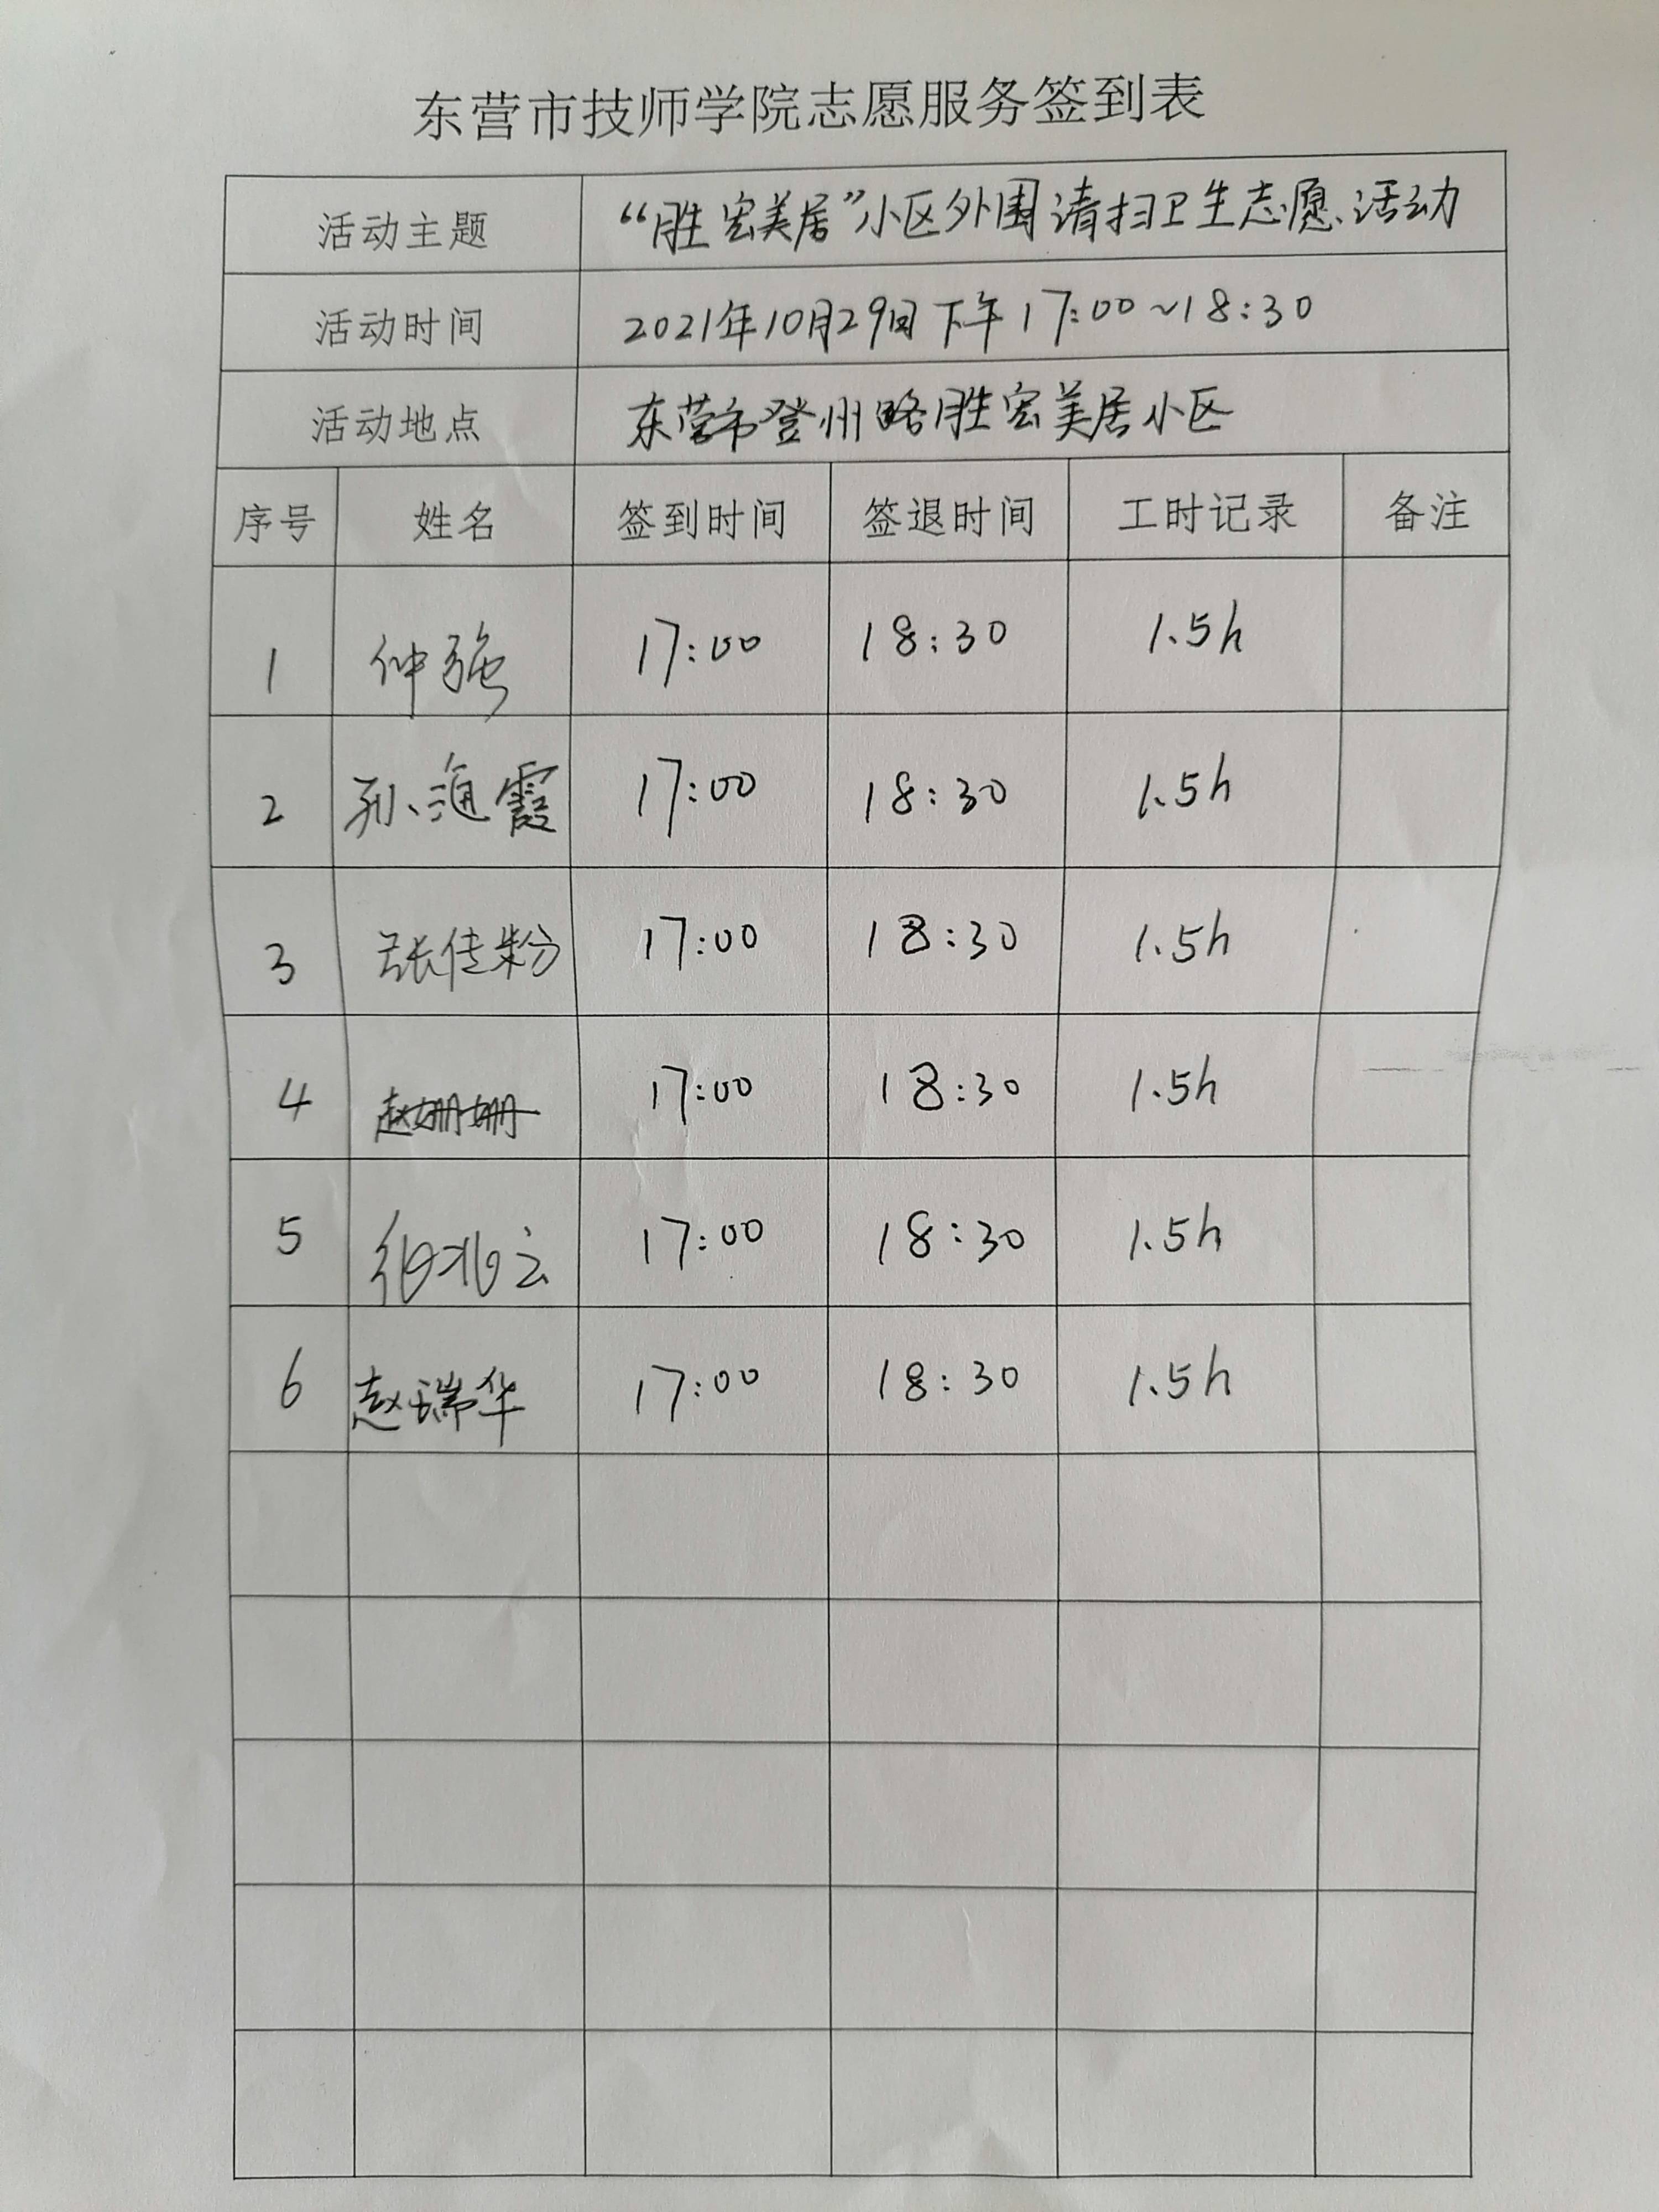 东营市技师学院志愿服务签到表
活动主题 “胜宏美居”小区外围请扫卫生志愿活动
活动时间 2021年10月29日下午17:00~18:30
活动地点 东营市登州路胜宏美居小区
序号 姓名 签到时间 签退时间 工时记录 备注
1 仲强 17:00 18:30 1.5h
2 孙海霞 17:00 18:30 1.5h
3 张传粉 17:00 18:30 1.5h
4 赵姗姗 17:00 18:30 1.5h
5 17:00 18:30 1.5h
6 赵瑞华 17:00 18:30 1.5h